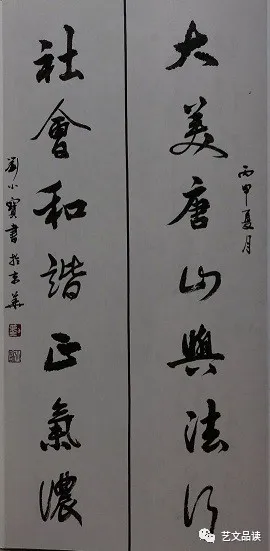 丙申夏月
大美唐山與法行
社會和諧正氣濃
劉小寶書於京華
艺文品读